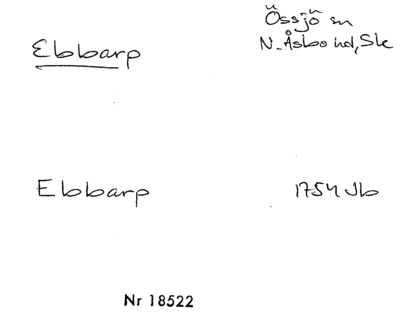 Ebbarp
Össjö sn
N. Åsbo hd, Sk
Ebbarp
1754 Jb
Nr 18522